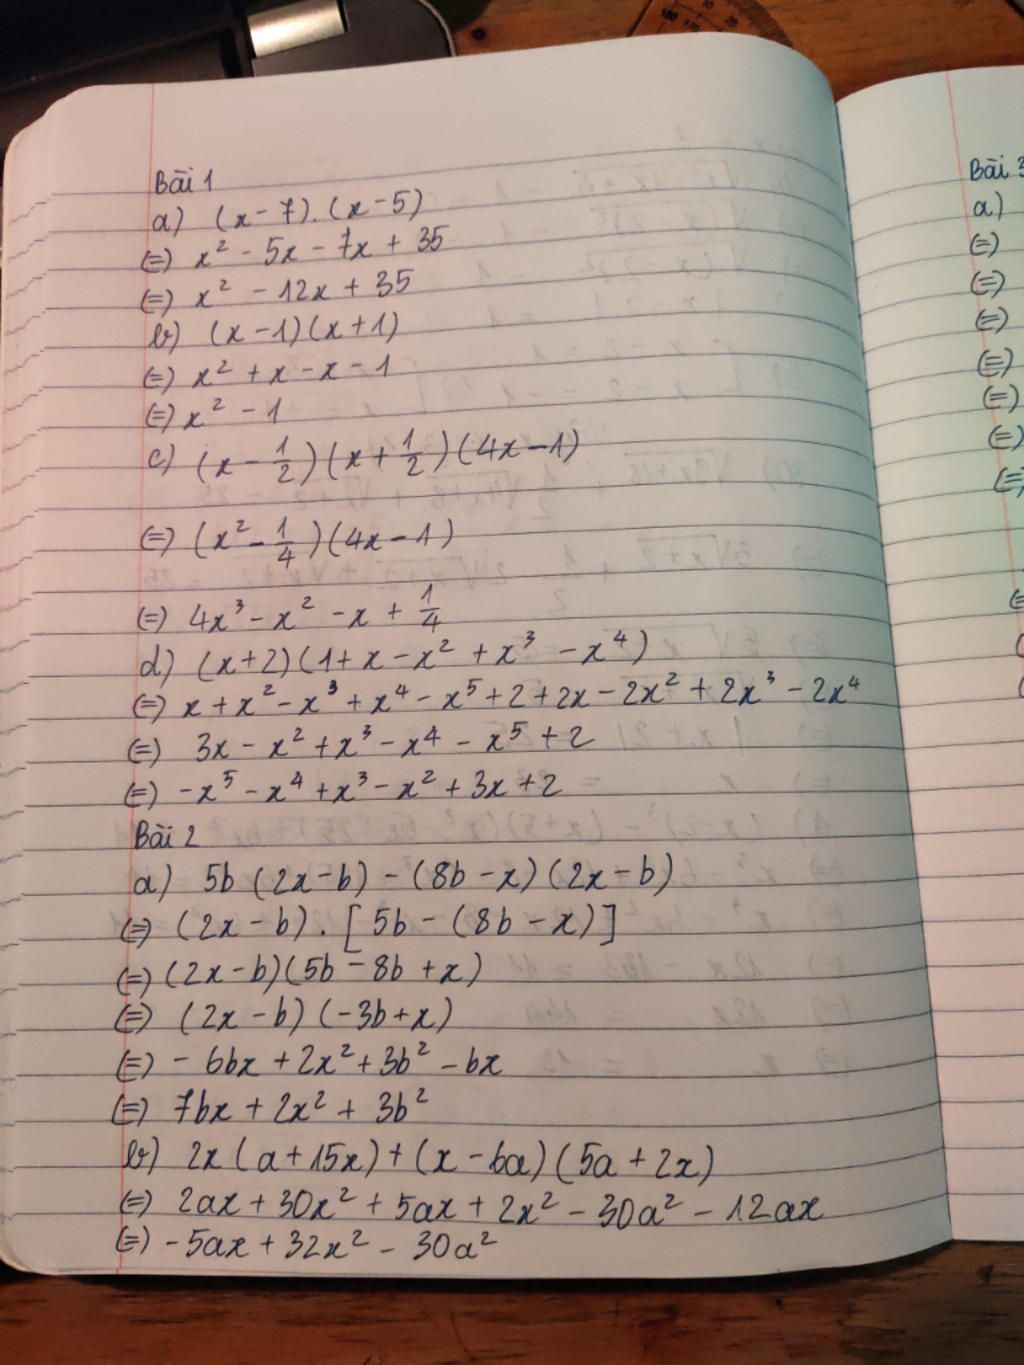 Bài 1
a) (x - 7).(x - 5)
(=) x² - 5x - 7x + 35
(=) x² - 12x + 35
b) (x - 1)(x + 1)
(=) x² + x - x - 1
(=) x² - 1
c) (x - 1/2)(x + 1/2)(4x - 1)
(=) (x² - 1/4)(4x - 1)
(=) 4x³ - x² - x + 1/4
d) (x + 2)(1 + x - x² + x³ - x⁴)
(=) x + x² - x³ + x⁴ - x⁵ + 2 + 2x - 2x² + 2x³ - 2x⁴
(=) 3x - x² + x³ - x⁴ - x⁵ + 2
(=) -x⁵ - x⁴ + x³ - x² + 3x + 2
Bài 2
a) 5b (2x - b) - (8b - x)(2x - b)
(=) (2x - b).[5b - (8b - x)]
(=) (2x - b)(5b - 8b + x)
(=) (2x - b)(-3b + x)
(=) - 6bx + 2x² + 3b² - bx
(=) 7bx + 2x² + 3b²
b) 2x (a + 15x) + (x - 6a)(5a + 2x)
(=) 2ax + 30x² + 5ax + 2x² - 30a² - 12ax
(=) -5ax + 32x² - 30a²
Bài 3
a)
(=)
(=)
(=)
(=)
(=)
(=)
(=)